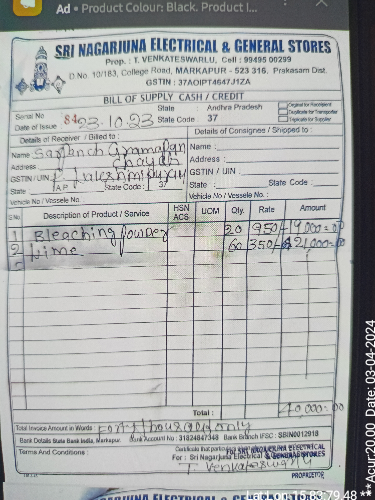 Ad • Product Colour: Black. Product I...
SRI NAGARJUNA ELECTRICAL & GENERAL STORES
Prop. : T. VENKATESWARLU, Cell : 99495 00299
D.No. 10/183, College Road, MARKAPUR - 523 316, Prakasam Dist.
GSTIN : 37AOIPT4647J1ZA
BILL OF SUPPLY CASH / CREDIT
Serial No 84
State : Andhra Pradesh
Original for Recipient
Duplicate for Transporter
Triplicate for Supplier
Date of Issue 03-10-23 State Code : 37
Details of Receiver / Billed to :
Details of Consignee / Shipped to :
Name
Name :
Address
Address :
GSTIN / UIN
GSTIN / UIN :
State AP State Code : 37
State : State Code :
Vehicle No / Vessele No.
Vehicle No / Vessele No. :
S.No. Description of Product / Service HSN ACS UOM Qty. Rate Amount
1 Bleaching Powder 20 950/- 19,000=00
2 Lime 60 350/- 21,000=00
Total : 40,000=00
Total Invoice Amount in Words : Forty thousand only
Bank Details State Bank India, Markapur. Bank Account No : 31824847348 Bank Branch IFSC : SBIN0012918
Terms And Conditions :
For SRI NAGARJUNA ELECTRICAL & GENERAL STORES
For : Sri Nagarjuna Electrical & General Stores
T. Venkateswarlu
PROPRIETOR
NAGARJUNA ELECTRICAL & GENERAL STORES
**Acur:20.00 Date: 03-04-2024
Lat:Lon:15.83:79.48 **